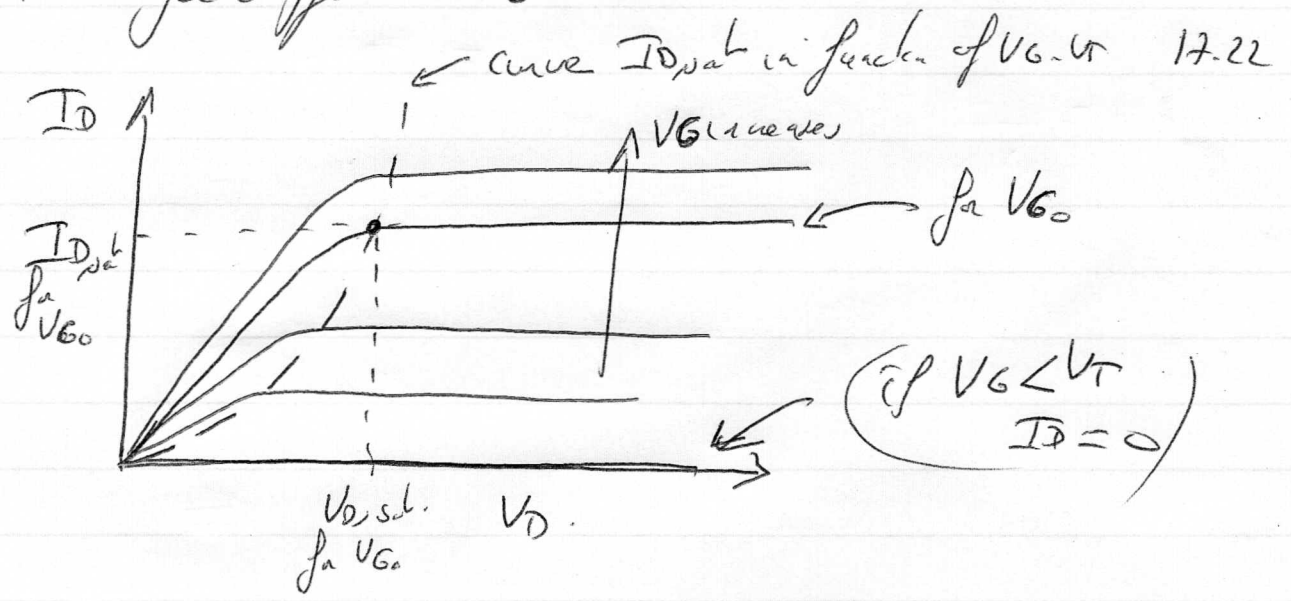 curve ID,sat in functn of VG-VT 17.22
ID
VG increases
for VG0
ID,sat
for
VG0
(if VG<VT
ID=0)
VD,sat.
VD.
for VG0